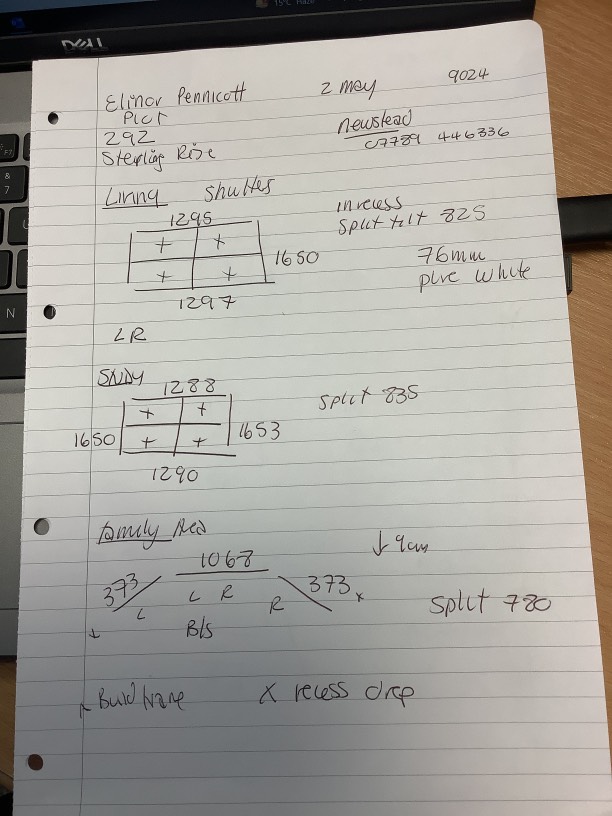 DELL
Elinor Pennicott 2 May 9024
Plot
292
Sterling Rise
Newstead
07789 446336
Living Shutters
in recess
split tilt 825
1295
1650
76mm
pure white
1297
LR
Study
1288
split 835
1650 1653
1290
Family Area
↓ 9cm
1068
373 373 x
L L R R
split 780
B/S
Build frame X recess drop